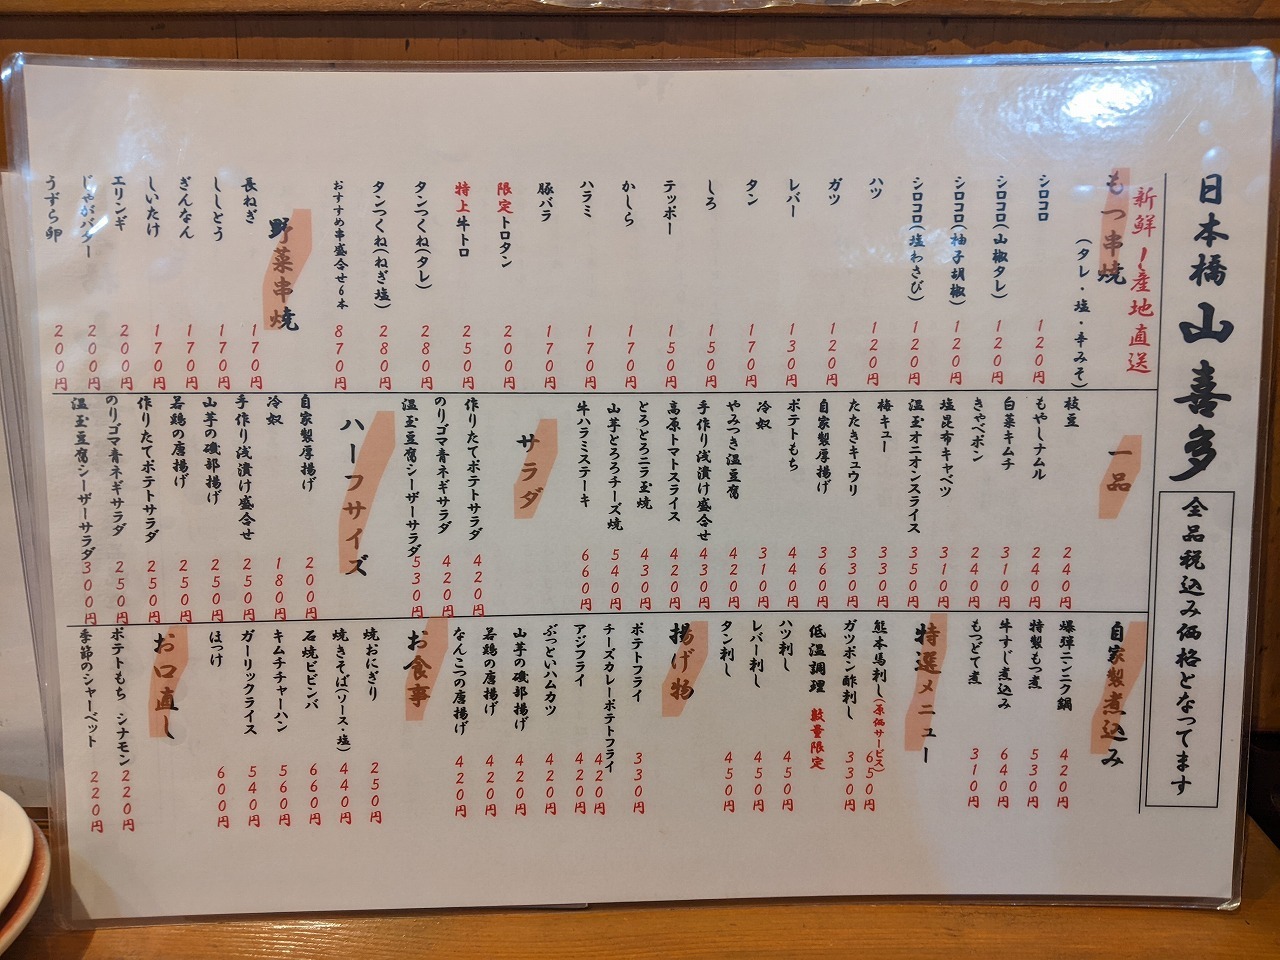 日本橋 山喜多
全品税込み価格となってます
新鮮 産地直送
もつ串焼
(タレ・塩・辛みそ)
シロコロ 120円
シロコロ(山椒タレ) 120円
シロコロ(柚子胡椒) 120円
シロコロ(塩わさび) 120円
ハツ 120円
ガツ 120円
レバー 130円
タン 170円
しろ 150円
テッポー 150円
かしら 170円
ハラミ 170円
豚バラ 170円
限定トロタン 200円
特上牛トロ 250円
タンつくね(タレ) 280円
タンつくね(ねぎ塩) 280円
おすすめ串盛合せ6本 870円
野菜串焼
長ねぎ 170円
ししとう 170円
ぎんなん 170円
しいたけ 170円
エリンギ 200円
じゃがバター 200円
うずら卵 200円
一品
枝豆 240円
もやしナムル 240円
白菜キムチ 310円
きゃべポン 240円
塩昆布キャベツ 310円
温玉オニオンスライス 350円
梅キュー 330円
たたきキュウリ 330円
自家製厚揚げ 360円
ポテトもち 440円
冷奴 310円
やみつき温豆腐 420円
手作り浅漬け盛合せ 430円
高原トマトスライス 420円
とろとろニラ玉焼 430円
山芋とろろチーズ焼 540円
牛ハラミステーキ 660円
サラダ
作りたてポテトサラダ 420円
のりゴマ青ネギサラダ 420円
温玉豆腐シーザーサラダ 530円
ハーフサイズ
自家製厚揚げ 200円
冷奴 180円
手作り浅漬け盛合せ 250円
山芋の磯部揚げ 250円
若鶏の唐揚げ 250円
作りたてポテトサラダ 250円
のりゴマ青ネギサラダ 250円
温玉豆腐シーザーサラダ 300円
自家製煮込み
爆弾ニンニク鍋 420円
特製もつ煮 530円
牛すじ煮込み 640円
もつどて煮 310円
特選メニュー
熊本馬刺し(原価サービス) 650円
ガツポン酢刺し 330円
低温調理 数量限定
ハツ刺し 450円
レバー刺し 450円
タン刺し 450円
揚げ物
ポテトフライ 330円
チーズカレーポテトフライ 420円
アジフライ 420円
ぶっといハムカツ 420円
山芋の磯部揚げ 420円
若鶏の唐揚げ 420円
なんこつの唐揚げ 420円
お食事
焼おにぎり 250円
焼きそば(ソース・塩) 440円
石焼ビビンバ 660円
キムチチャーハン 560円
ガーリックライス 540円
ほっけ 600円
お口直し
ポテトもち シナモン 220円
季節のシャーベット 220円